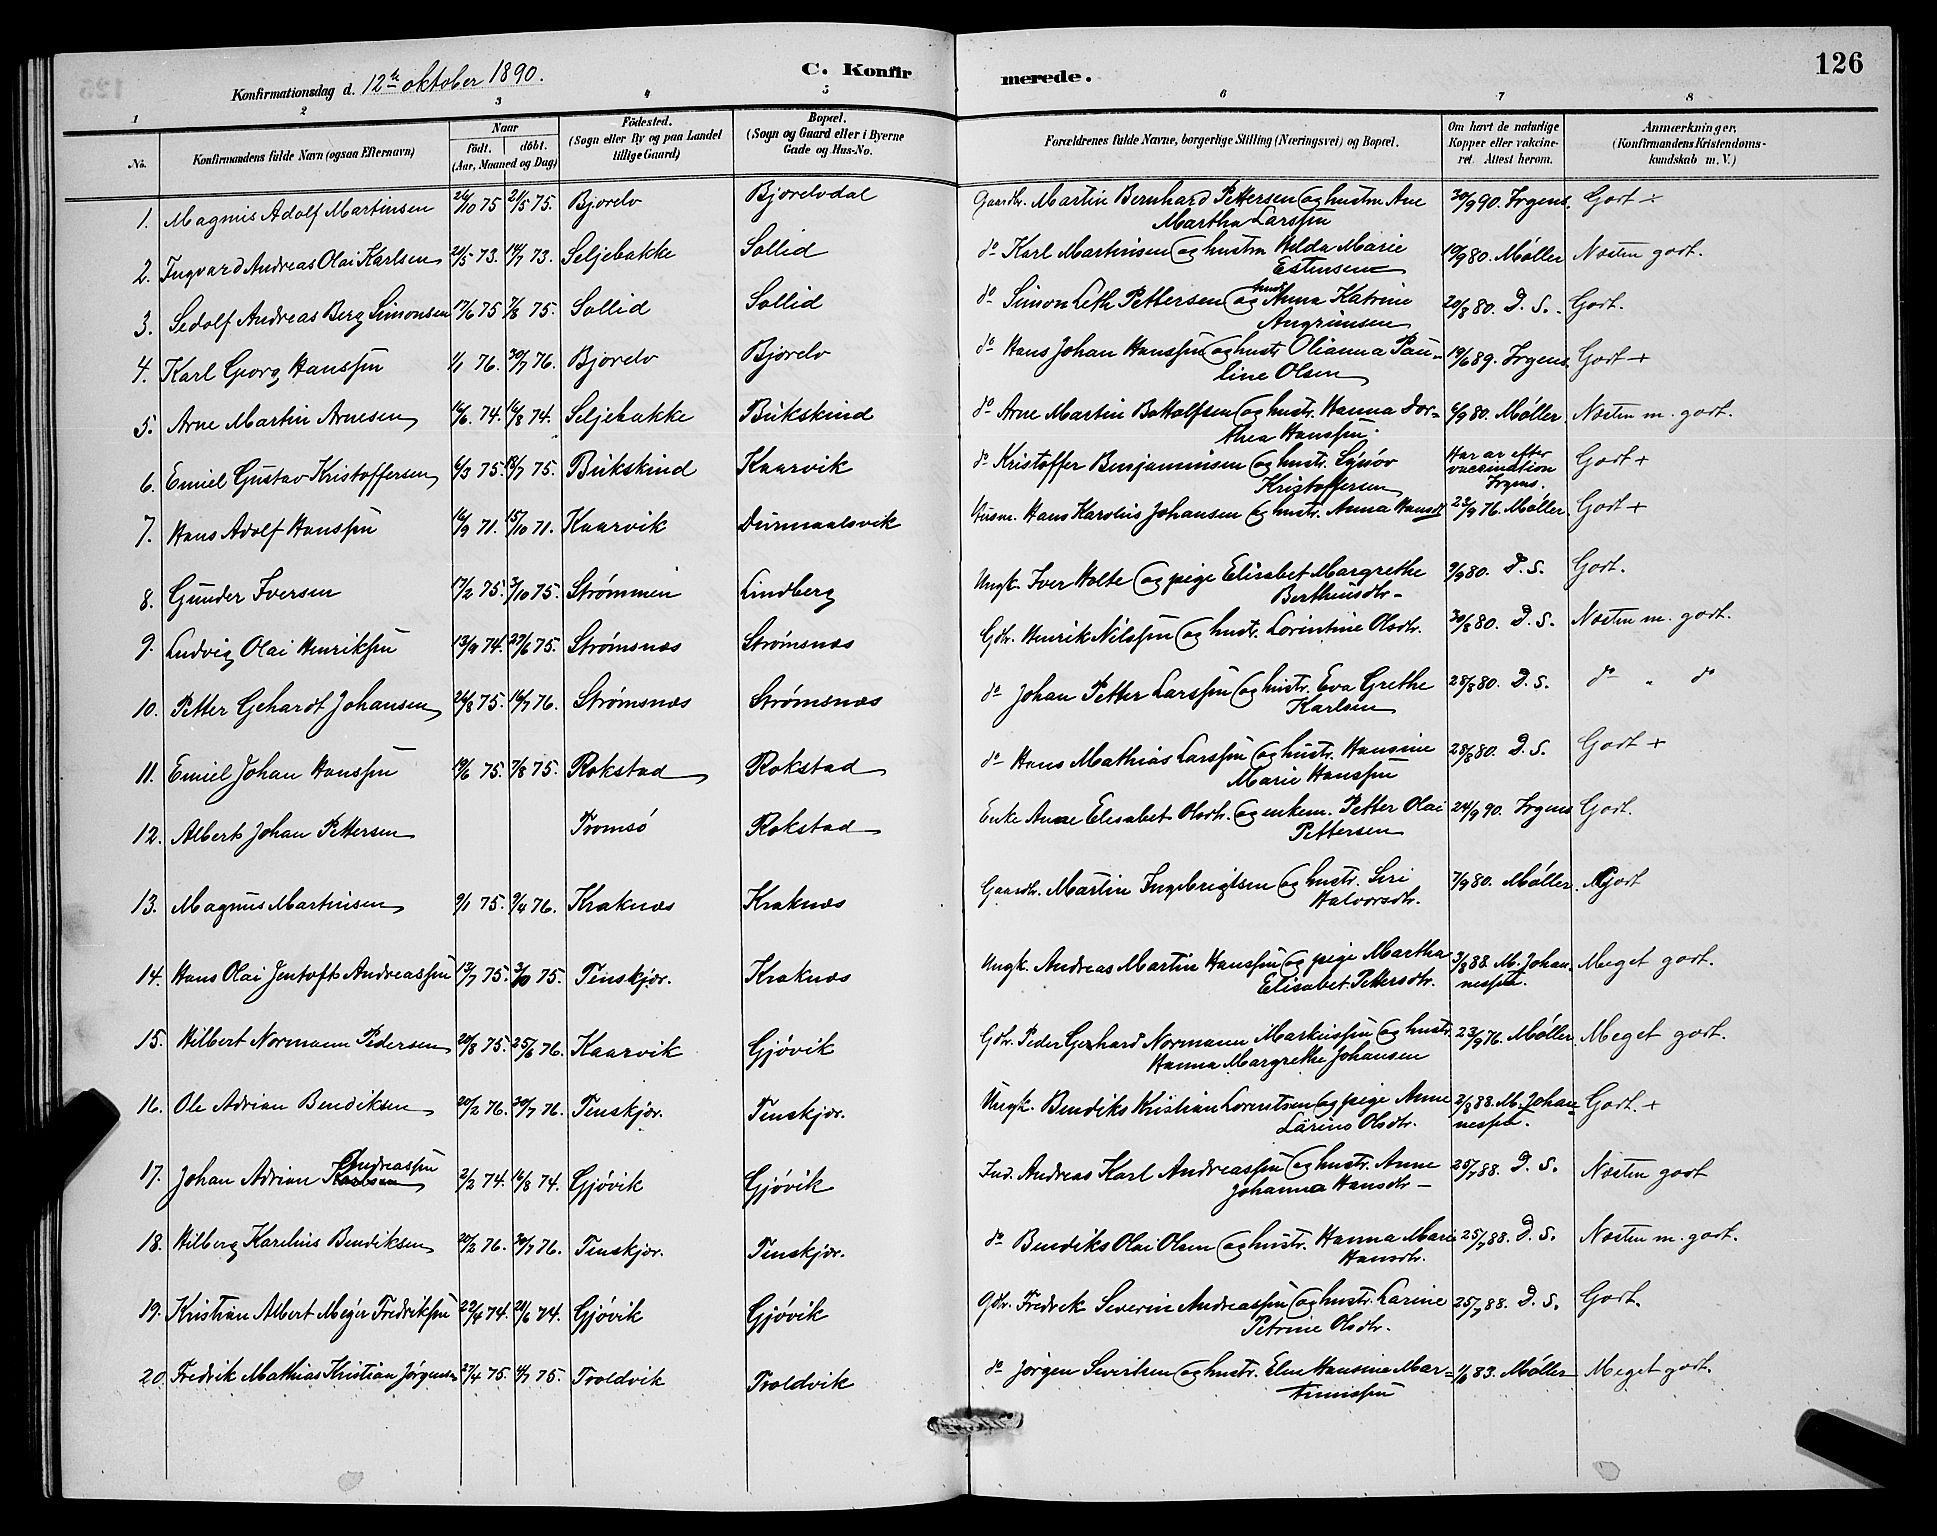 126
Konfirmationsdag d. 12te oktober 1890.
C. Konfirmerede.
1 2 3 4 5 6 7 8
No. Konfirmandens fulde Navn (ogsaa Efternavn) Naar født. døbt. (Aar, Maaned og Dag) Fødested. (Sogn eller By og paa Landet tillige Gaard) Bopæl. (Sogn og Gaard eller i Byerne Gade og Hus-No. Forældrenes fulde Navne, borgerlige Stilling (Næringsvei) og Bopæl. Om havt de naturlige Kopper eller vakcineret. Attest herom. Anmærkninger. (Konfirmandens Kristendomskundskab m. V.)
1. Magnus Adolf Martinsen 26/10 75 2/5 75. Bjorelv Bjorelvdal Gaardbr. Martin Bernhard Pettersen og hustru Ane 30/9 90. Irgens. Godt +
Martha Larssen
2. Ingvard Andreas Olai Karlsen 21/5 73. 14/7 73. Seljebakke Sollid do Karl Martinisen og hustru Hilda Marie 10/9 80. Møller Næsten godt.
Estensen
3. Sedolf Andreas Berg Simonsen 17/6 75 7/8 75. Sollid Sollid do Simon Leth Pettersen og hust. Anna Katrine 20/8 80. D. S. Godt.
Angrimsen
4. Karl Georg Hanssen 1/1 76. 30/7 76. Bjorelv Bjorelv do Hans Johan Hanssen og hustr Olianna Pau- 19/6 89. Irgens. Godt +
line Olsen
5. Arne Martin Arnesen 16/6. 74. 16/8 74. Seljebakke Bukskind do Arne Martin Bottolfsen og hustr. Hanna Dor- 6/9 80. Møller Næsten m. godt.
thea Hanssen.
6. Emiel Gustav Kristoffersen 6/3 75. 18/7 75. Bukskind Kaarvik do Kristoffer Benjaminsen og hustr. Synøv Har ar efter Godt +
Kristoffersen vaccination
Irgens.
7. Hans Adolf Hanssen 16/9 71. 15/10 71. Kaarvik Durmaalsvik Husm. Hans Karolius Johansen og hustr. Anna Hansdt 23/9 76. Møller. Godt +
8. Gunder Iversen 17/2 75. 3/10 75. Strømmen Lindberg Ungk. Iver Holte og pige Elisabet Margrethe 9/9 80. D. S. Godt.
Berthinsdtr.
9. Ludvig Olai Henriksen 13/9 74. 27/6 75. Strømsnæs Strømsnæs Gdbr. Henrik Nilssen og hustr. Lorintine Olsdtr. 30/8 80. D. S. Næsten m. godt.
10. Petter Gehardt Johansen 26/8 75. 16/7 76. Strømsnæs Strømsnæs do Johan Petter Larssen og hustr. Eva Grethe 28/8 80. D. S. do " do
Karlsen
11. Emiel Johan Hanssen 19/6 75. 7/8 75. Rokstad Rokstad do Hans Mathias Larssen og hustr. Hansine 28/8 80. D. S. Godt +
Marie Hanssen
12. Albert Johan Pettersen Tromsø Rokstad Enke Anne Elisabet Olsdtr. og enkem. Petter Olai 24/9 90. Irgens Godt.
Pettersen
13. Magnus Martinisen 9/1 75. 9/4 76. Kraknæs Kraknæs Gaardbr. Martin Ingebrigtsen og hustr. Siri 7/9 80. Møller. Godt
Halvorsdtr.
14. Hans Olai Jentoft Andreassen 13/7 75. 3/10 75. Tenskjær. Kraknæs Ungk. Andreas Martin Hanssen og pige Martha 3/8 88 M. Johan- Meget godt.
Elisabet Pettersdtr. nessen.
15. Hilbert Normann Pedersen 20/8 75. 25/6 76. Kaarvik Gjøvik Gdbr. Peder Gerhard Normann Markussen og hustr. 23/9 76. Møller Meget godt.
Hanna Margrethe Johansen
16. Ole Adrian Bendiksen 20/2 76. 30/7 76. Tenskjær. Tenskjær. Ungk. Bendiks Kristian Lorentsen og pige Anne 2/8 88. M. Johan- Godt. +
Larine Olsdtr. nessen.
17. Johan Adrian Andreassen 2/2 74. 16/8 74. Gjøvik Gjøvik Ind. Andreas Karl Andreassen og hustr. Anne 25/7 88. D. S. Næsten godt
Johanna Hansdtr
18. Hilberg Karelius Bendiksen 20/2 76. 30/7 76. Tenskjær. Tenskjær. do Bendiks Olai Olsen og hustr. Hanna Marie 25/7 88. D. S. Næsten m. godt.
Hansdtr.
19. Kristian Albert Mejer Fredriksen 22/4 74. 21/6 74. Gjøvik Gjøvik Gdbr. Fredrik Severin Andreassen og hustr. Larine 25/7 88. D. S. Godt.
Petrine Olsdtr.
20. Fredrik Mathias Kristian Jørgensen 27/4 75. 4/7 75. Troldvik Troldvik do Jørgen Sivertsen og hustr. Elen Hansine Mar- 1/6 83. Møller Meget godt.
tinussen